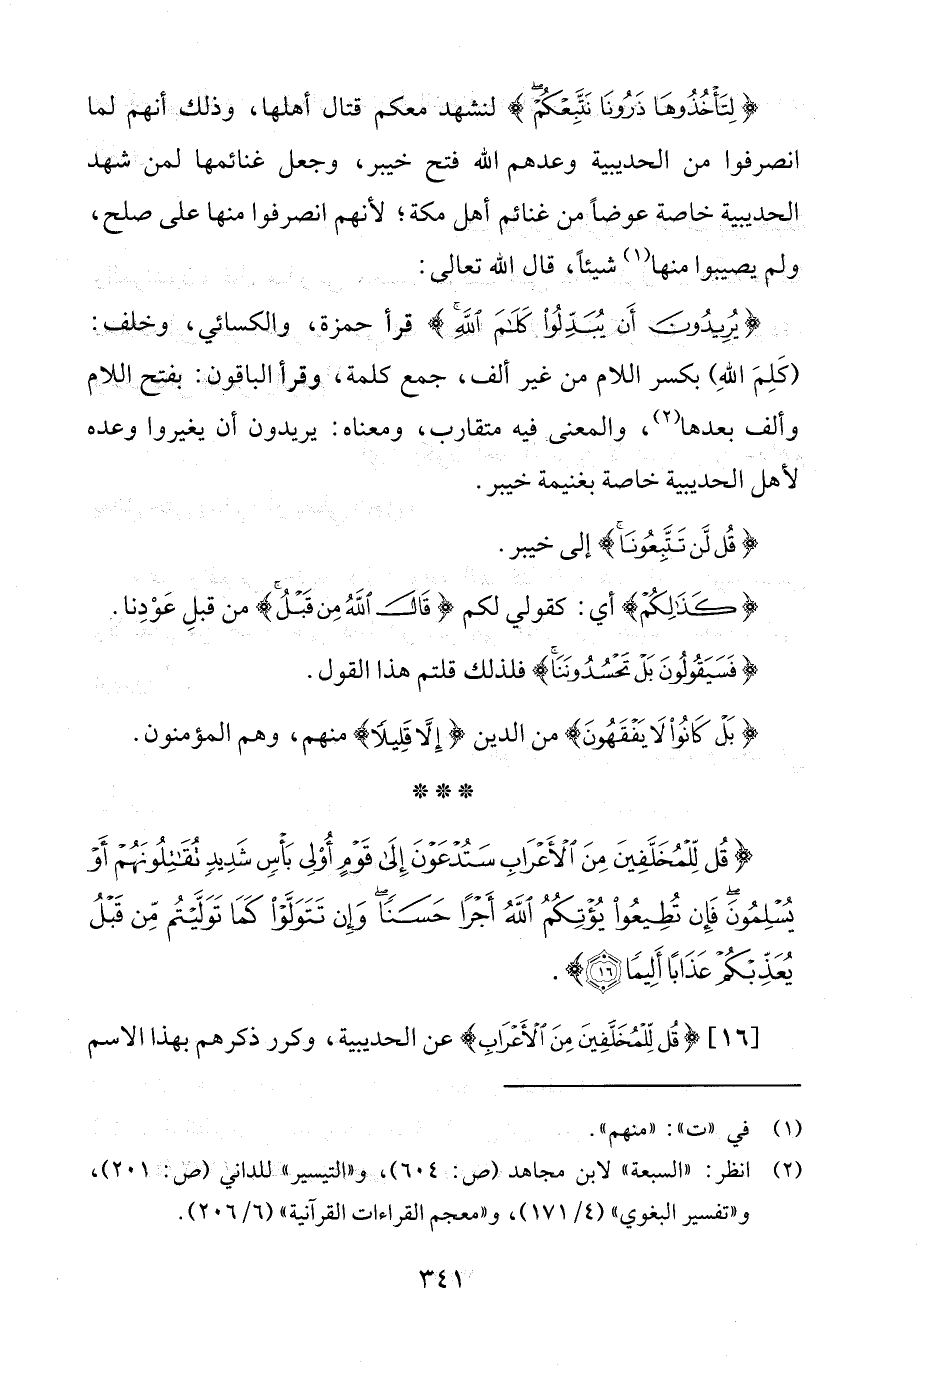 ﴿لِتَأْخُذُوهَا ذَرُونَا نَتَّبِعْكُمْ ۖ﴾ لنشهد معكم قتال أهلها، وذلك أنهم لما
انصرفوا من الحديبية وعدهم الله فتح خيبر، وجعل غنائمها لمن شهد
الحديبية خاصة عوضاً من غنائم أهل مكة؛ لأنهم انصرفوا منها على صلح،
ولم يصيبوا منها(١) شيئاً، قال الله تعالى:
﴿يُرِيدُونَ أَن يُبَدِّلُواْ كَلَٰمَ ٱللَّهِ ۚ﴾ قرأ حمزة، والكسائي، وخلف:
(كَلِمَ اللهِ) بكسر اللام من غير ألف، جمع كلمة، وقرأ الباقون: بفتح اللام
وألف بعدها(٢)، والمعنى فيه متقارب، ومعناه: يريدون أن يغيروا وعده
لأهل الحديبية خاصة بغنيمة خيبر.
﴿قُل لَّن تَتَّبِعُونَا ۚ﴾ إلى خيبر.
﴿كَذَٰلِكُمْ﴾ أي: كقولي لكم ﴿قَالَ ٱللَّهُ مِن قَبْلُ ۚ﴾ من قبلِ عَوْدِنا.
﴿فَسَيَقُولُونَ بَلْ تَحْسُدُونَنَا ۚ﴾ فلذلك قلتم هذا القول.
﴿بَلْ كَانُواْ لَا يَفْقَهُونَ﴾ من الدين ﴿إِلَّا قَلِيلًا﴾ منهم، وهم المؤمنون.
* * *
﴿قُل لِّلْمُخَلَّفِينَ مِنَ ٱلْأَعْرَابِ سَتُدْعَوْنَ إِلَىٰ قَوْمٍ أُوْلِى بَأْسٍ شَدِيدٍ تُقَٰتِلُونَهُمْ أَوْ
يُسْلِمُونَ ۖ فَإِن تُطِيعُواْ يُؤْتِكُمُ ٱللَّهُ أَجْرًا حَسَنًا ۖ وَإِن تَتَوَلَّوْاْ كَمَا تَوَلَّيْتُم مِّن قَبْلُ
يُعَذِّبْكُمْ عَذَابًا أَلِيمًا ١٦﴾.
[١٦] ﴿قُل لِّلْمُخَلَّفِينَ مِنَ ٱلْأَعْرَابِ﴾ عن الحديبية، وكرر ذكرهم بهذا الاسم
(١) في «ت»: «منهم».
(٢) انظر: «السبعة» لابن مجاهد (ص: ٦٠٤)، و«التيسير» للداني (ص: ٢٠١)،
و«تفسير البغوي» (٤/ ١٧١)، و«معجم القراءات القرآنية» (٦/ ٢٠٦).
٣٤١